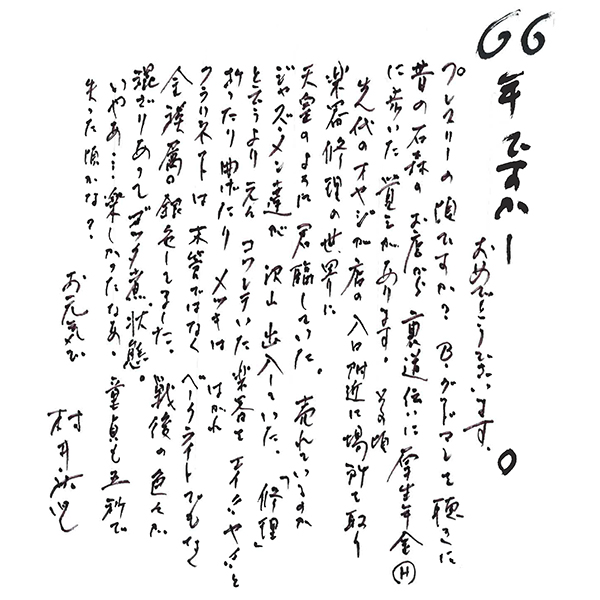 66年ですかー。
おめでとうございます。
プレスリーの頃ですか？ B・グッドマンを聴きに
昔の石森のお店から裏道伝いに厚生年金Ⓗ
に歩いた覚えがあります。その頃
先代のオヤジが店の入口附近に場所を取り
楽器修理の世界に
天皇のように君臨していた。売れているのか
ジャズ・メン達が沢山出入していた。「修理」
と云うより コワレていた楽器を エイ、ヤッ、と
折ったり曲げたり メッキははがれ
クラリネットは木管ではなくベークライトでもなく
金族属の銀色してました。戦後の色々が
混ざりあってゴッタ煮状態。
いやあ…楽しかったなあ。童貞も五秒で
失った頃かな？
お元気で
村井